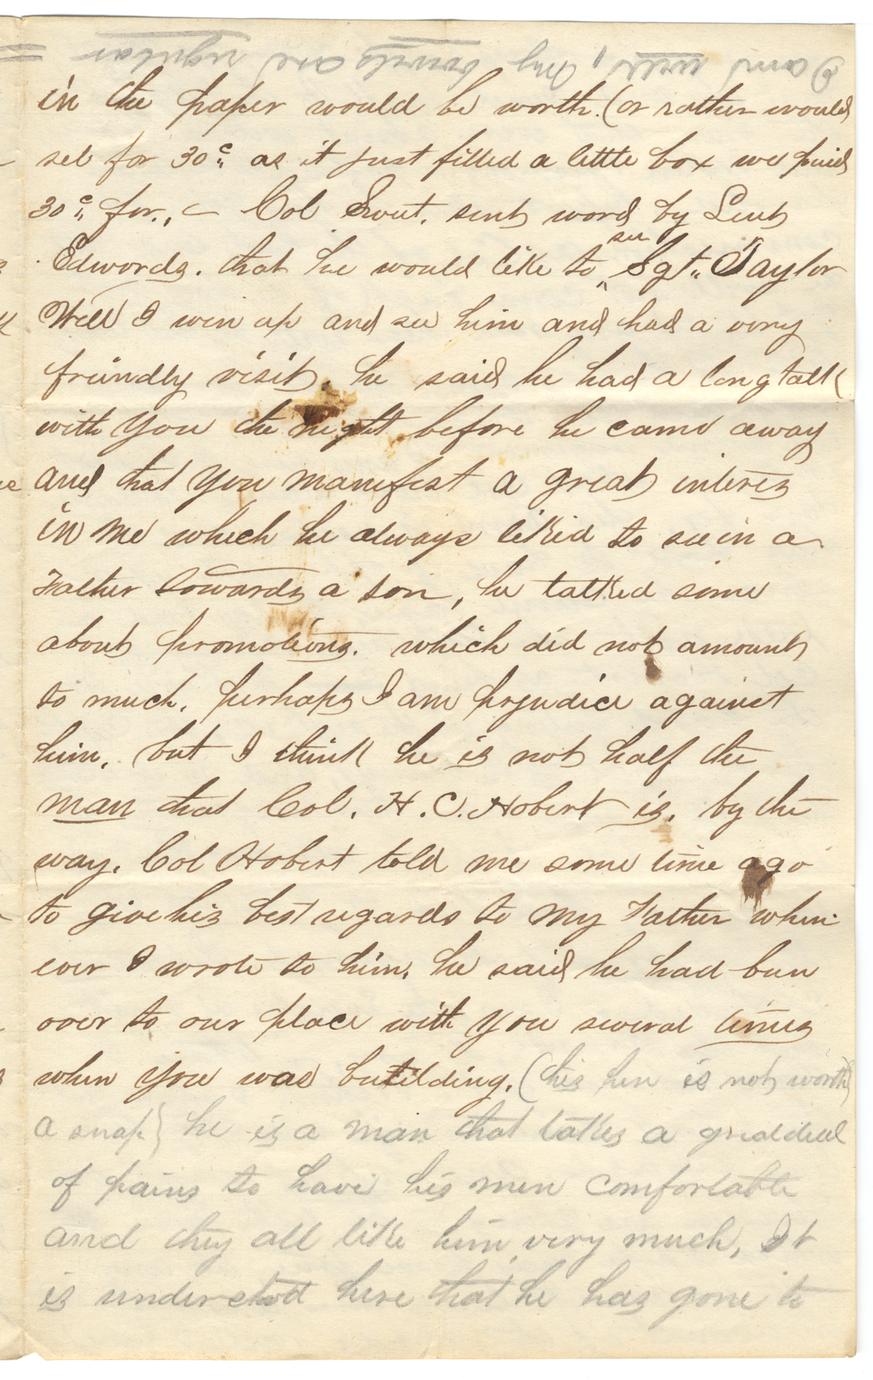 I am well, My bowels are regular
in the paper would be worth. (or rather would
sel for 30 c. as it just filled a little box we paid
30 c. for., Col Swet. sent word by Leut
Edwords. that he would like to see Sgt. Taylor
Well I win up and see him and had a very
friendly visit, he said he had a long talk
with you the night before he came away
and that you manifest a great interes
in me which he always liked to see in a
Father towards a son, he talked some
about promotions. which did not amount
to much. perhaps I am prejudice against
him, but I think he is not half the
man that Col. H. C. Hobert is. by the
way. Col Hobert told me some time ago
to give his best regards to my Father when
ever I wrote to him, he said he had ben
over to our place with you several times
when you was building. (this pen is not worth
a snap) he is a man that takes a greddeal
of pains to have his men comfortable
and they all like him very much, It
is understod here that he has gone to